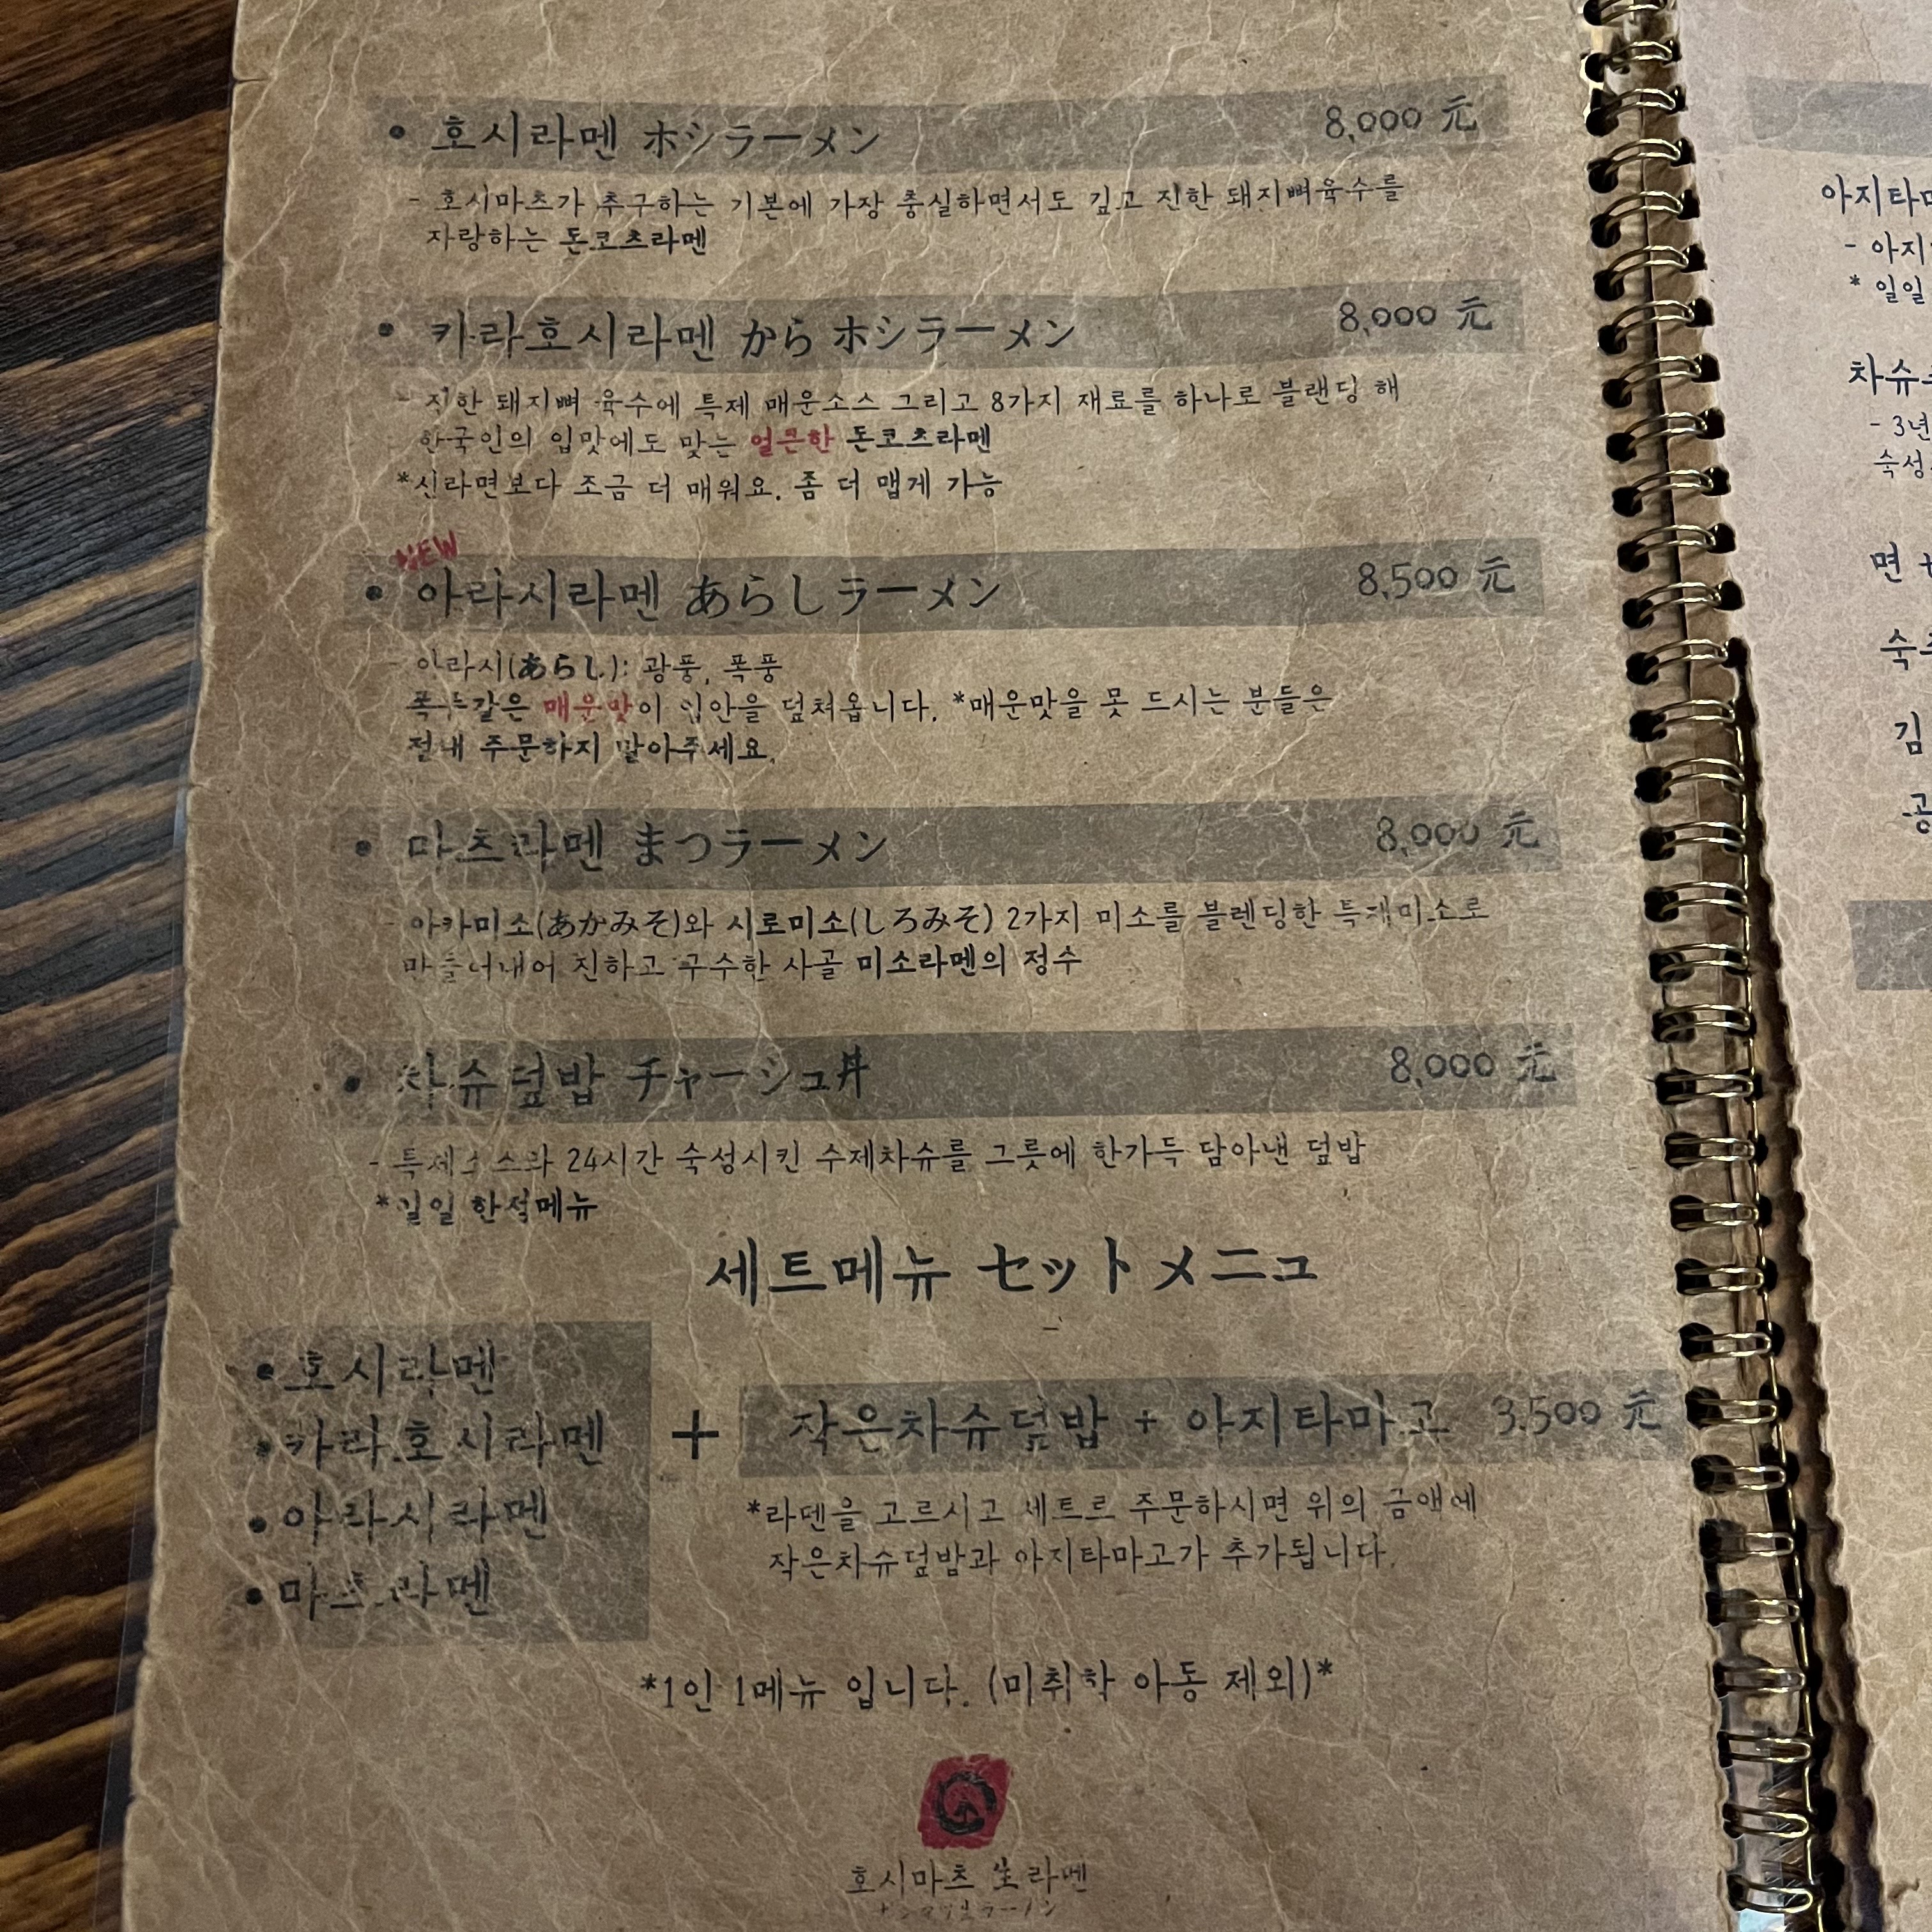 • 호시라멘 ホシラーメン 8,000 元
- 호시마츠가 추구하는 기본에 가장 충실하면서도 깊고 진한 돼지뼈육수를
자랑하는 돈코츠라멘
• 카라호시라멘 からホシラーメン 8,000 元
- 진한 돼지뼈 육수에 특제 매운소스 그리고 8가지 재료를 하나로 블랜딩 해
한국인의 입맛에도 맞는 얼큰한 돈코츠라멘
*신라면보다 조금 더 매워요. 좀 더 맵게 가능
NEW
• 아라시라멘 あらしラーメン 8,500 元
- 아라시(あらし): 광풍, 폭풍
폭풍같은 매운맛이 입안을 덮쳐옵니다. *매운맛을 못 드시는 분들은
절대 주문하지 말아주세요.
• 마츠라멘 まつラーメン 8,000 元
- 아카미소(あかみそ)와 시로미소(しろみそ) 2가지 미소를 블렌딩한 특제미소로
만들어내어 진하고 구수한 사골 미소라멘의 정수
• 차슈덮밥 チャーシュ丼 8,000 元
- 특제소스와 24시간 숙성시킨 수제차슈를 그릇에 한가득 담아낸 덮밥
*일일 한정메뉴
세트메뉴 セットメニュ
• 호시라멘
• 카라호시라멘
• 아라시라멘
• 마츠라멘
+
작은차슈덮밥 + 아지타마고 3,500 元
*라멘을 고르시고 세트로 주문하시면 위의 금액에
작은차슈덮밥과 아지타마고가 추가됩니다.
*1인 1메뉴 입니다. (미취학 아동 제외)*
호시마츠 生라멘
- 아지
* 일일
- 3년
숙성
면 +
김